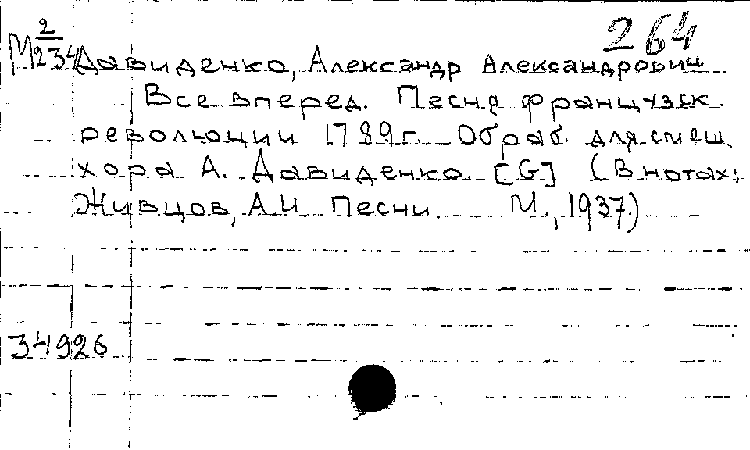 264
М 2/234 Давиденко, Александр Александрович
Все вперед. Песня французск.
революции 1789 г. Обраб. для смеш.
хора А. Давиденко [G] (В нотах:
Живцов, А.И. Песни. М., 1937.)
34926